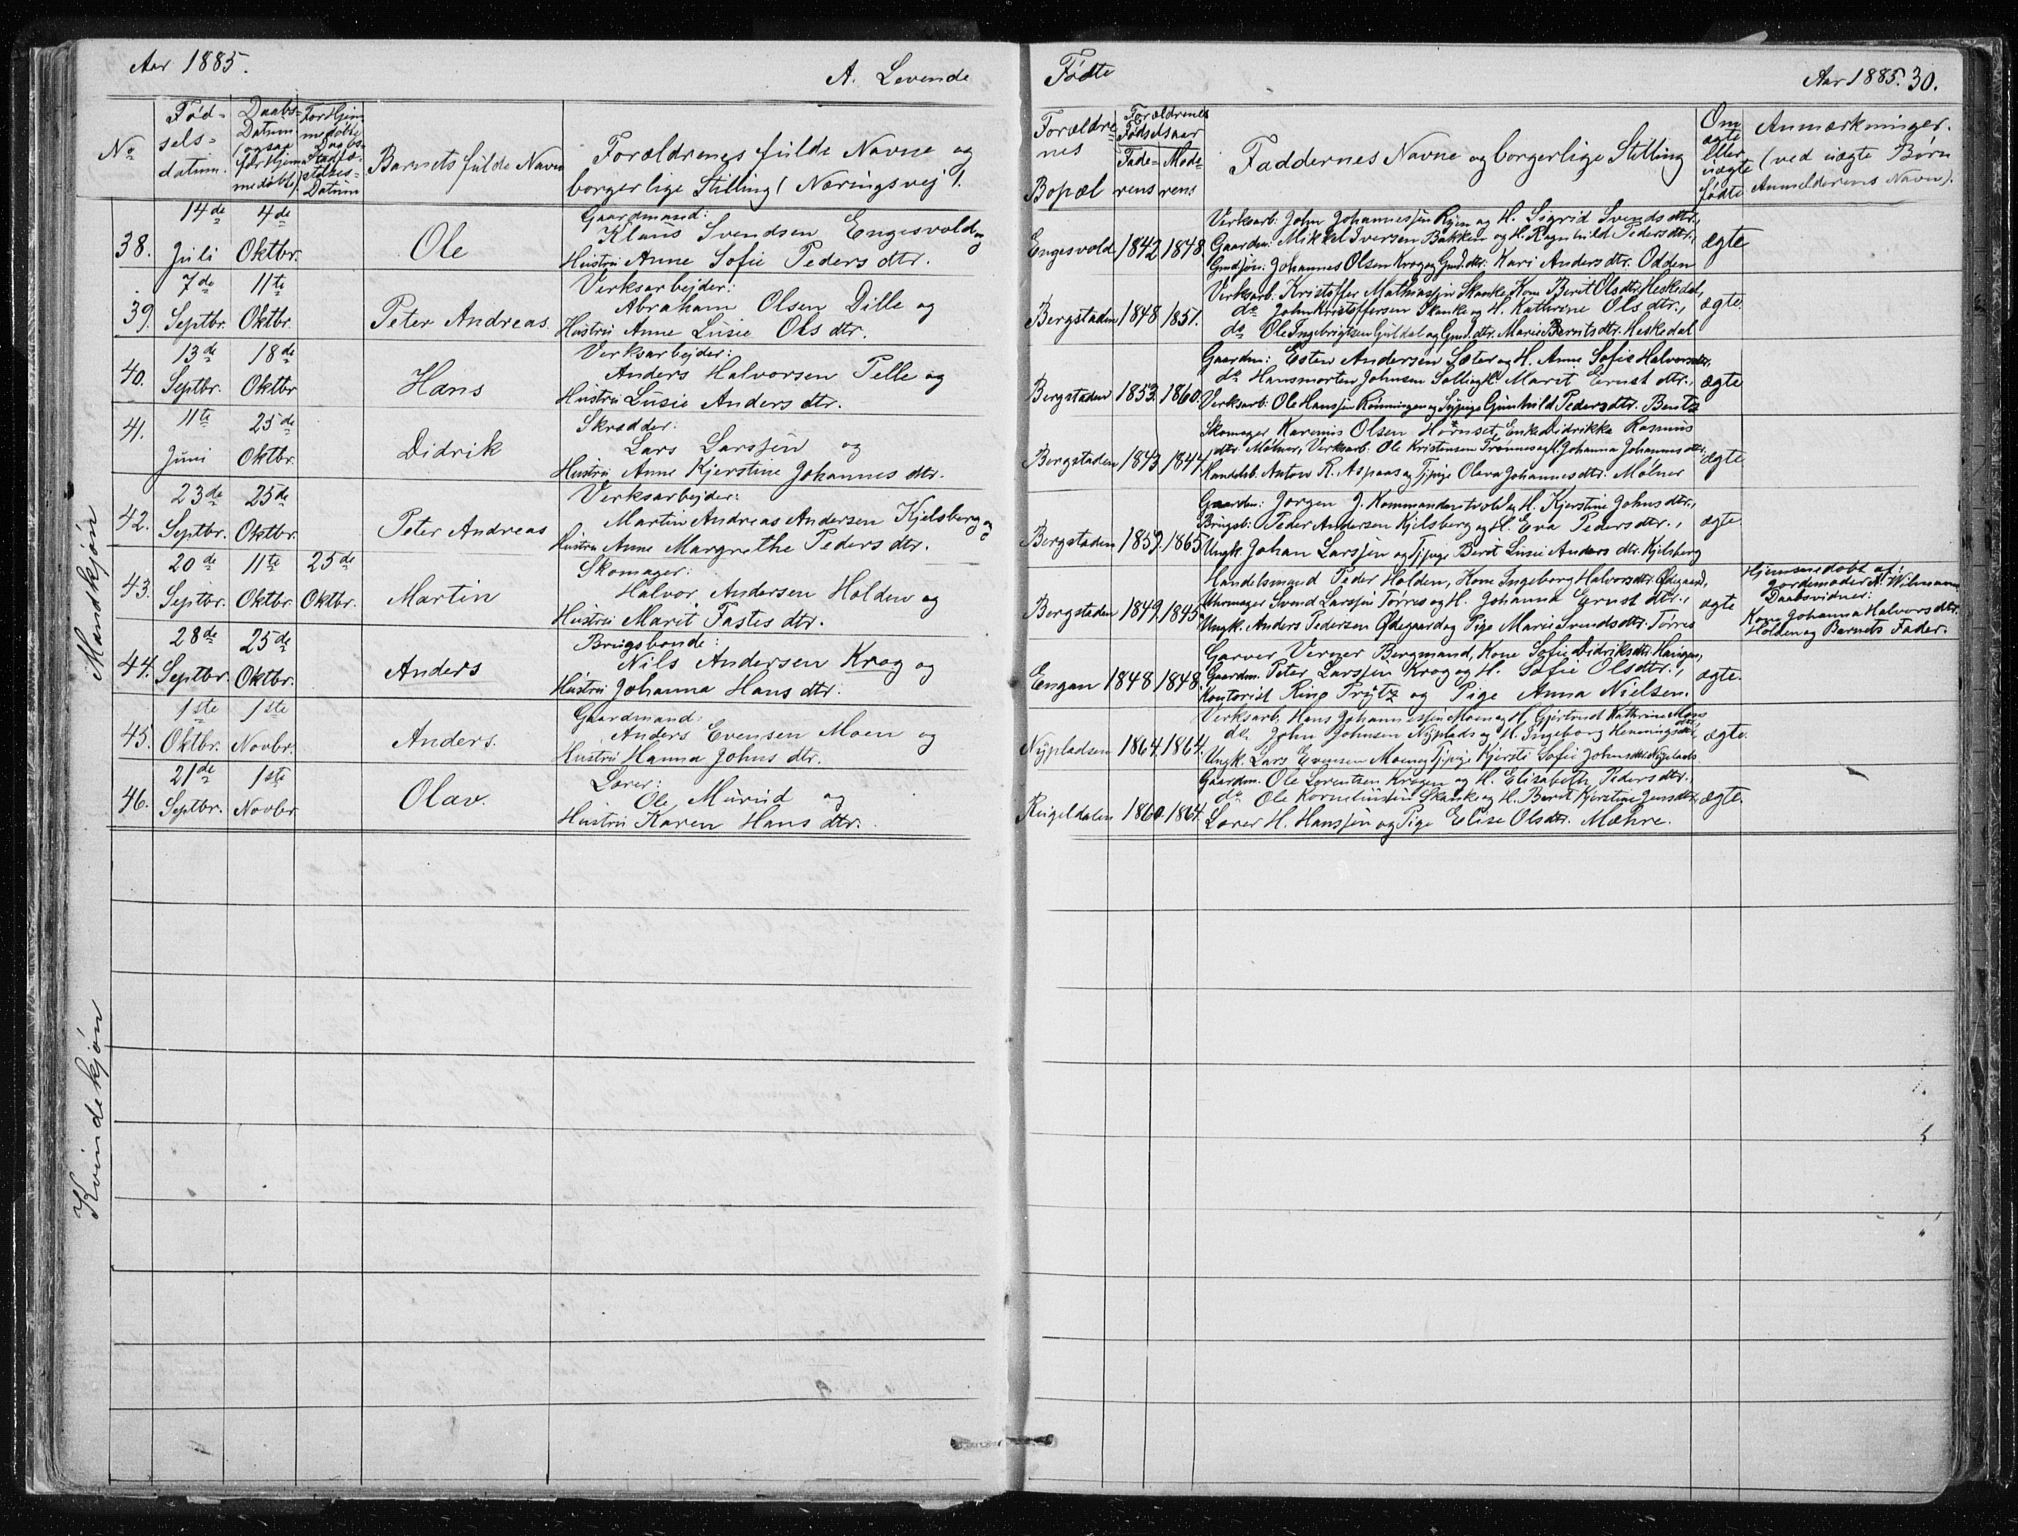 Aar 1885.
A. Levende
No
Fødselsdatum.
Daabs-Datum (ogsaa for Hjemmedøbte).
For Hjemmedøbte Daabs-Stadfæstelses-Datum
Barnets fulde Navn
Forældrenes fulde Navne og
borgerlige Stilling (Næringsvej).
Mandkjøn
38.
14de Juli
4de Oktbr.
Ole
Gaardmand:
Klaus Svendsen Engesvold og
Hustru Anne Sofie Peders dtr.
39.
7de Septbr.
11te Oktbr.
Peter Andreas.
Verksarbejder:
Abraham Olsen Dille og
Hustru Anne Lusie Ols dtr.
40.
13de Septbr.
18de Oktbr
Hans
Verksarbejder:
Anders Halvorsen Pelle og
Hustru Lusie Anders dtr.
41.
11te Juni
25de Oktbr.
Didrik
Skrædder:
Lars Larssen og
Hustru Anne Kjerstine Johannes dtr.
42.
23de Septbr.
25de Oktbr.
Peter Andreas
Verksarbejder:
Martin Andreas Andersen Kjelsberg og
Hustru Anne Margrethe Peders dtr.
43.
20de Septbr.
11te Oktbr.
25de Oktbr.
Martin
Skomager:
Halvor Andersen Holden og
Hustru Marit Tastes dtr.
44.
28de Septbr.
25de Oktbr.
Anders
Brugsbonde:
Nils Andersen Krog og
Hustru Johanna Hans dtr.
45.
1ste Oktbr.
1ste Novbr.
Anders.
Gaardmand:
Anders Evensen Moen og
Hustru Hanna Johns dtr.
46.
21de Septbr.
1ste Novbr.
Olav.
Lærer:
Ole Murud og
Hustru Karen Hans dtr.
Kvindekjøn
Fødte
Aar 1885. 30.
Forældrenes Bopæl
Forældrenes Fødselsaar
Faderens
Moderens
Faddernes Navne og borgerlige Stilling
Om ægte eller uægte fødte
Anmærkninger.
(ved uægte Børn
Anmelderens Navn).
Engesvold 1842. 1848.
Verksarb. John Johannessen Ryen og H. Sigrid Svends dtr.,
Gaardm: Mikkel Iversen Bakken og H. Ragnhild Peders dtr.,
Gmdsøn: Johannes Olsen Krog og Gmd.dtr. Kari Anders dtr. Odden
ægte
Bergstaden 1848. 1851.
Verksarb. Kristoffer Mathiassen Skanke, Kone Berit Ols dtr. Heskedal,
do John Kristoffersen Skanke og H. Kathrine Ols dtr.,
do Ole Ingebrigtsen Guldal og Gmd.dtr. Marie Bernts dtr. Heskedal
ægte.
Bergstaden 1853. 1860.
Gaardm: Esten Andersen Sæter og H. Anne Sofie Halvors dtr.
do Hansmorten Johnsen Solli og H. Marit Ernst dtr.,
Verksarb. Ole Hanssen Rønningen og Sypige Gunhild Peders dtr. Bentz
ægte
Bergstaden 1843. 1844.
Skomager Karenus Olsen Hornset, Enke Didrikke Rasmus
dtr. Mølner, Verksarb. Ole Kristensen Trønnes og H. Johanna Johannes dtr.
Handelsb. Anton R. Aspaas og Tj.pige Olava Johannes dtr. Mølner
ægte
Bergstaden 1859. 1865.
Gaardm: Jørgen J. Kommandantvold og H. Kjerstine Johns dtr.,
Brugsb: Peder Andersen Kjelsberg og H. Eva Peders dtr.,
Ungk. Johan Larssen og Tj.pige Berit Lusie Anders dtr. Kjelsberg
ægte.
Bergstaden 1849. 1845.
Handelsmand Peder Holden, Kone Ingeborg Halvors dtr. Ødegaard,
Uhrmager Svend Larssen Tørres og H. Johanna Ernst dtr.,
Ungk. Anders Pedersen Ødegaard og Pige Marie Svends dtr. Tørres
ægte
Hjemmedøbt af:
Jordemoder A. Wilmann
Daabsvidner:
Kone Johanna Halvors dtr.
Holden og Barnets Fader.
Engan 1848. 1848.
Garver Verner Bergmand, Kone Sofie Didriks dtr. Haugen,
Gaardm. Peter Larssen Krog og H. Sofie Ols dtr.,
Kontorist Ring Prytz og Pige Anna Nielsen.
ægte.
Nypladsen 1864. 1864.
Verksarb. Hans Johannessen Moen og H. Gjertrud Kathrine Mons dtr.
do. John Johnsen Nyplads og H. Ingeborg Hennings dtr.,
Ungk. Lars Evensen Moen og Tj.pige Kjersti Sofie Johns dtr. Nyplads
ægte.
Rugeldalen 1860. 1864.
Gaardm. Ole Lorentzen Krogen og H. Elisabeth Peders dtr.
do Ole Korneliussen Skanke og H. Berit Kjerstine Jens dtr.,
Lærer H. Hanssen og Pige Elise Ols dtr. Mæhre.
ægte.